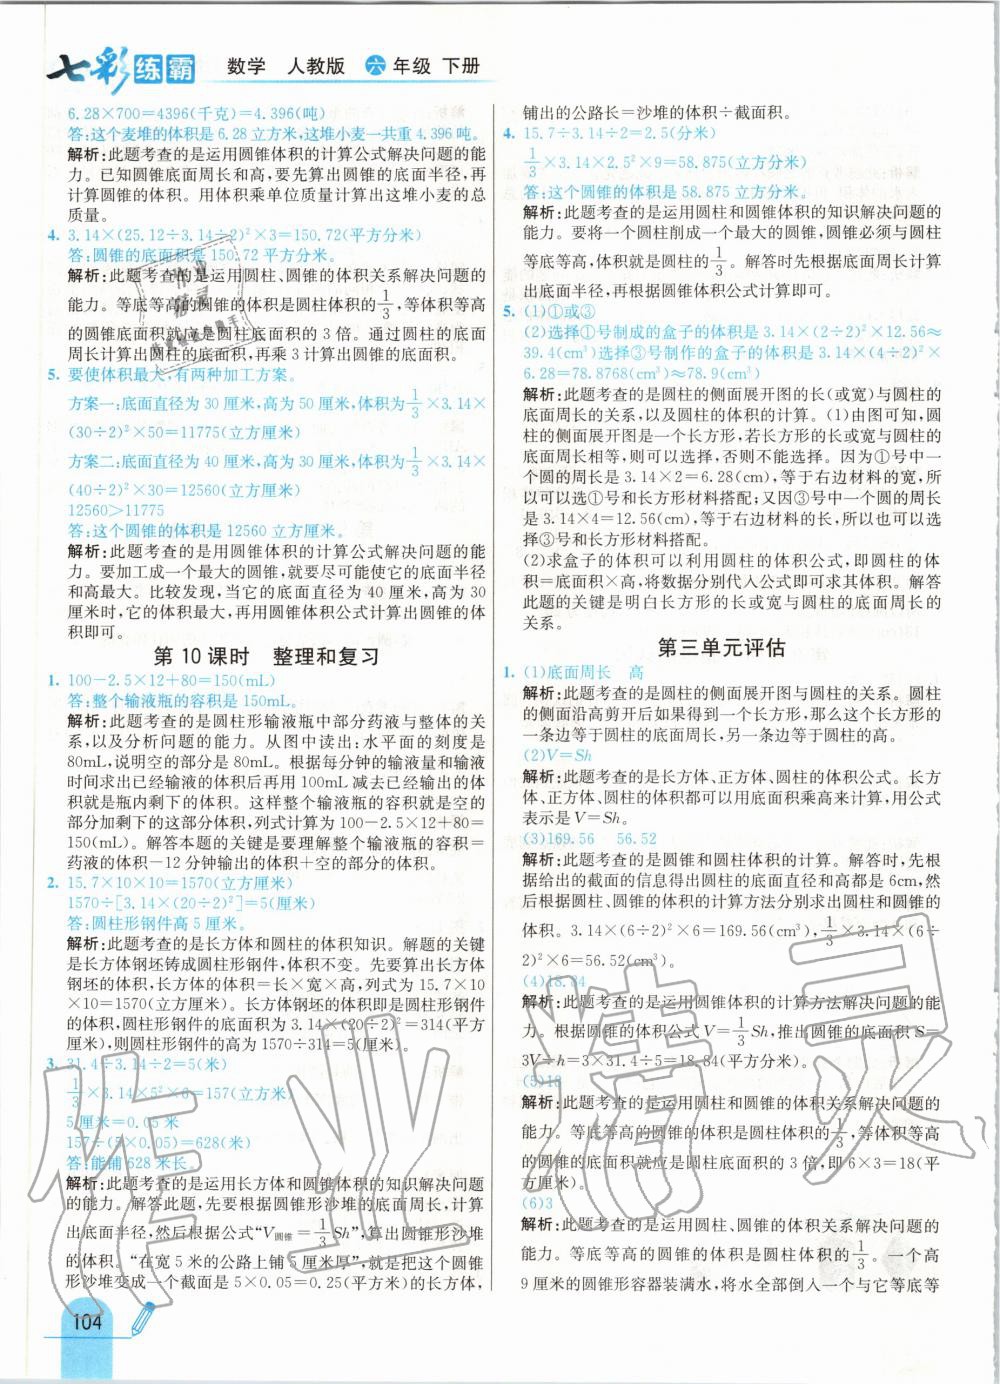 七彩练霸 数学 人教版 六年级 下册
6.28×700=4396(千克)=4.396(吨)
答:这个麦堆的体积是6.28立方米,这堆小麦一共重4.396吨。
解析:此题考查的是运用圆锥体积的计算公式解决问题的能
力。已知圆锥底面周长和高,要先算出圆锥的底面半径,再
计算圆锥的体积。用体积乘单位质量计算出这堆小麦的总
质量。
4. 3.14×(25.12÷3.14÷2)²×3=150.72(平方分米)
答:圆锥的底面积是150.72平方分米。
解析:此题考查的是运用圆柱、圆锥的体积关系解决问题的
能力。等底等高的圆锥的体积是圆柱体积的1/3,等体积等高
的圆锥底面积就是圆柱底面积的3倍。通过圆柱的底面
周长计算出圆柱的底面积,再乘3计算出圆锥的底面积。
5. 要使体积最大,有两种加工方案。
方案一:底面直径为30厘米,高为50厘米,体积为1/3×3.14×
(30÷2)²×50=11775(立方厘米)
方案二:底面直径为40厘米,高为30厘米,体积为1/3×3.14×
(40÷2)²×30=12560(立方厘米)
12560>11775
答:这个圆锥的体积是12560立方厘米。
解析:此题考查的是用圆锥体积的计算公式解决问题的能
力。要加工成一个最大的圆锥,就要尽可能使它的底面半径
和高最大。比较发现,当它的底面直径为40厘米,高为30
厘米时,它的体积最大,再用圆锥体积公式计算出圆锥的体
积即可。
第10课时 整理和复习
1. 100-2.5×12+80=150(mL)
答:整个输液瓶的容积是150mL。
解析:此题考查的是圆柱形输液瓶中部分药液与整体的关
系,以及分析问题的能力。从图中读出:水平面的刻度是
80mL,说明空的部分是80mL。根据每分钟的输液量和输液
时间求出已经输液的体积后再用100mL减去已经输液的体
积就是瓶内剩下的体积。这样整个输液瓶的容积就是空的
部分加剩下的这部分体积,列式计算为100-2.5×12+80=
150(mL)。解答本题的关键是要理解整个输液瓶的容积=
药液的体积-12分钟输出的体积+空的部分的体积。
2. 15.7×10×10=1570(立方厘米)
1570÷[3.14×(20÷2)²]=5(厘米)
答:圆柱形钢件高5厘米。
解析:此题考查的是长方体和圆柱的体积知识。解题的关键
是长方体钢坯铸成圆柱形钢件,体积不变。先要算出长方体
钢坯的体积,长方体的体积=长×宽×高,体积是15.7×10
×10=1570(立方厘米)。长方体钢坯的体积即是圆柱形钢件
的体积,圆柱形钢件的底面积为3.14×(20÷2)²=314(平方
厘米),则圆柱形钢件的高为1570÷314=5(厘米)。
3. 31.4÷3.14÷2=5(米)
1/3×3.14×5²×6=157(立方米)
5厘米=0.05米
157÷(5×0.05)=628(米)
答:能铺628米长。
解析:此题考查的是运用长方体和圆锥体积的知识解决问题
的能力。解答此题,先要根据圆锥形沙堆的底面周长,计算
出底面半径,然后根据公式“V圆锥=1/3Sh”,算出圆锥形沙堆
的体积。“在宽5米的公路上铺5厘米厚”,就是把这个圆锥
形沙堆变成一个截面是5×0.05=0.25(平方米)的长方体,
铺出的公路长=沙堆的体积÷截面积。
4. 15.7÷3.14÷2=2.5(分米)
1/3×3.14×2.5²×9=58.875(立方分米)
答:这个圆锥的体积是58.875立方分米。
解析:此题考查的是运用圆柱和圆锥的知识解决问题的
能力。要将一个圆柱削成一个最大的圆锥,圆锥必须与圆柱
等底等高,体积就是圆柱的1/3。解答时先根据底面周长计算
出底面半径,再根据圆锥体积公式计算即可。
5. (1)①或③
(2)选择①号制成的盒子的体积是3.14×(2÷2)²×12.56≈
39.4(cm³)选择③号制作的盒子的体积是3.14×(4÷2)²×
6.28=78.8768(cm³)≈78.9(cm³)
解析:此题考查的是圆柱的侧面展开图的长(或宽)与圆柱的
底面周长的关系,以及圆柱的体积的计算。(1)由图可知,圆
柱的侧面展开图是一个长方形,若长方形的长或宽与圆柱的
底面周长相等,则可以选择,否则不能选择。因为①号中一
个圆的周长是3.14×2=6.28(cm),等于右边材料的宽,所
以可以选①号和长方形材料搭配;又因③号中一个圆的周长
是3.14×4=12.56(cm),等于右边材料的长,所以也可以选
③号和长方形材料搭配。
(2)求盒子的体积可以利用圆柱的体积公式,即圆柱的体积
=底面积×高,将数据分别代入公式即可求其体积。解答
此题的关键是明白长方形的长或宽与圆柱的底面周长的
关系。
第三单元评估
1. (1)底面周长 高
解析:此题考查的是圆柱的侧面展开图与圆柱的关系。圆柱
的侧面沿高剪开后如果得到一个长方形,那么这个长方形的
一条边等于圆柱的底面周长,另一条边等于圆柱的高。
(2)V=Sh
解析:此题考查的是长方体、正方体、圆柱的体积公式。长方
体、正方体、圆柱的体积都可以用底面积乘高来计算,用公式
表示是V=Sh。
(3)169.56 56.52
解析:此题考查的是圆锥和圆柱体积的计算。解答时,先根
据给出的截面的信息得出圆柱的底面直径和高都是6cm,然
后根据圆柱、圆锥的体积的计算方法分别求出圆柱和圆锥的
体积。3.14×(6÷2)²×6=169.56(cm³),1/3×3.14×(6÷
2)²×6=56.52(cm³)。
(4)18.84
解析:此题考查的是运用圆锥体积的计算方法解决问题的能
力。根据圆锥的体积公式V=1/3Sh,推出圆锥的底面积S=
3V÷h=3×31.4÷5=18.84(平方分米)。
(5)18
解析:此题考查的是运用圆柱和圆锥的体积关系解决问题的
能力。等底等高的圆锥是圆柱体积的1/3,等体积等高
的圆锥的底面积应是圆柱底面积的3倍,即6×3=18(平
方厘米)。
(6)3
解析:此题考查的是运用圆柱、圆锥的体积关系解决问题的
能力。等底等高的圆锥的体积是圆柱体积的1/3。一个高
9厘米的圆锥形容器装满水,将水全部倒入一个与它等底等
104
作业精灵